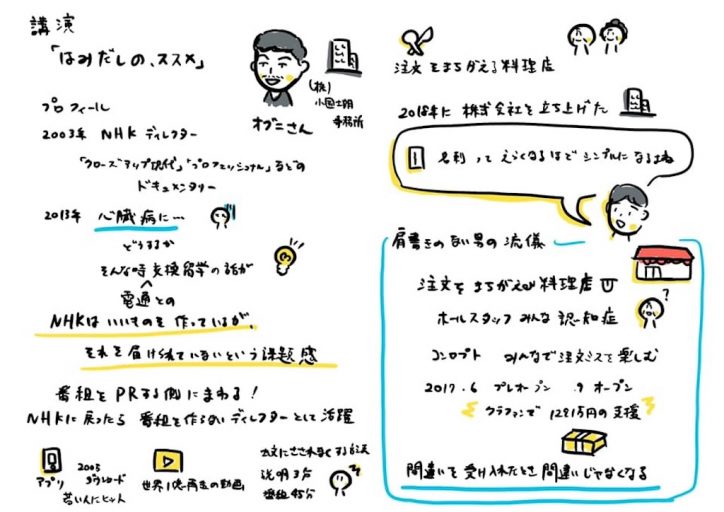 講演
「はみだしの、ススメ」
(株)
小国士朗
事務所
オグニさん
プロフィール
2003年 NHK ディレクター
「クローズアップ現代」「プロフェッショナル」などの
ドキュメンタリー
2013年 心臓病に…
どうするか
そんな時交換留学の話が
電通との
NHKはいいものを作っているが、
それを届けられていないという課題感
番組をPRする側にまわる!
NHKに戻ったら 番組を作らないディレクターとして活躍
アプリ
200万
ダウンロード
若い人にヒット
世界1億再生の動画
説明3分
番組45分
注文をまちがえる料理店
2018年に 株式会社を立ち上げた
名刺って えらくなるほどシンプルになるよね
肩書きのない男の流儀
注文をまちがえる料理店
ホールスタッフ みんな 認知症
?
コンセプト みんなで注文ミスを楽しむ
2017.6 プレオープン .9 オープン
クラファンで 1291万円の支援
間違いを受け入れたとき間違いじゃなくなる